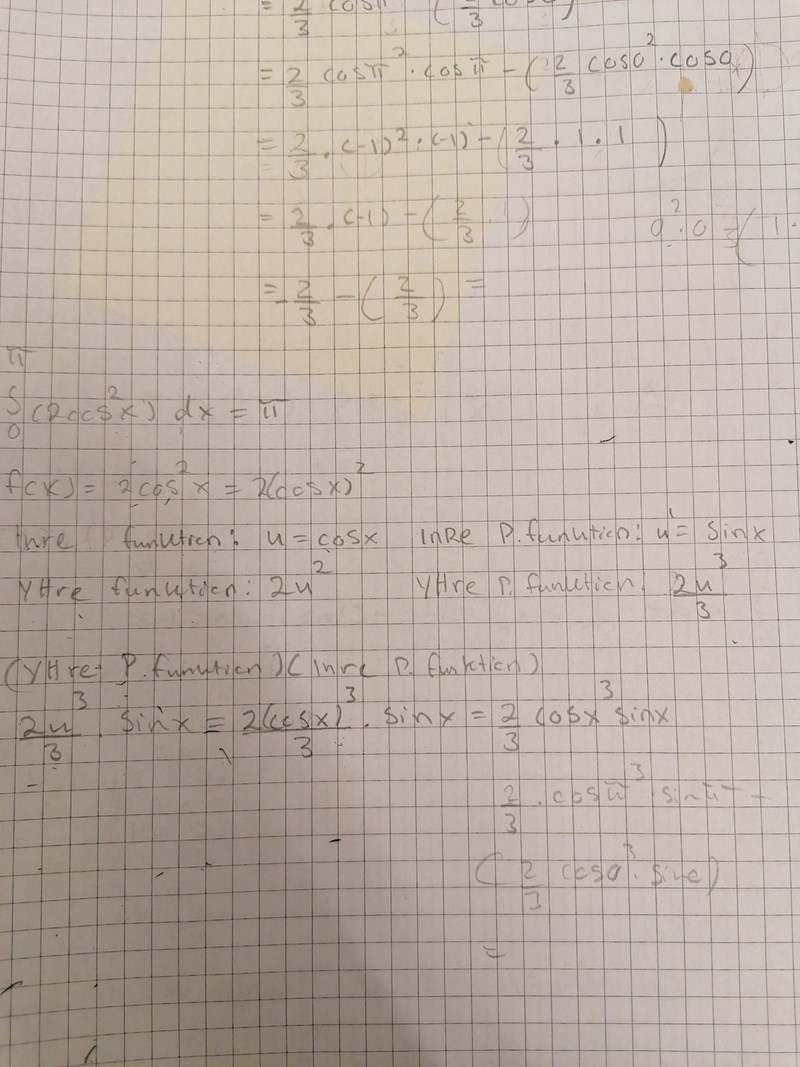 = 2/3 cosπ (
= 2/3 cosπ² · cosπ - (2/3 cos0² · cos0)
= 2/3 · (-1)² · (-1) - (2/3 · 1 · 1)
= 2/3 · (-1) - (2/3 · 1)
0² · 0 = (1 ·
= -2/3 - (2/3) =
π
∫ (2cos²x) dx = π
0
f(x) = 2cos²x = 2(cosx)²
Inre funktion: u = cosx InRe P.funktion: u' = sinx
YHre funktion: 2u² YHre P. funktion: 2u³/3
(YHre P.funktion)(Inre P. funktion)
2u³/3 · sinx = 2(cosx)³/3 · sinx = 2/3 cosx³ sinx
2/3 · cosπ³ · sinπ -
(2/3 cos0³ · sin0)
=